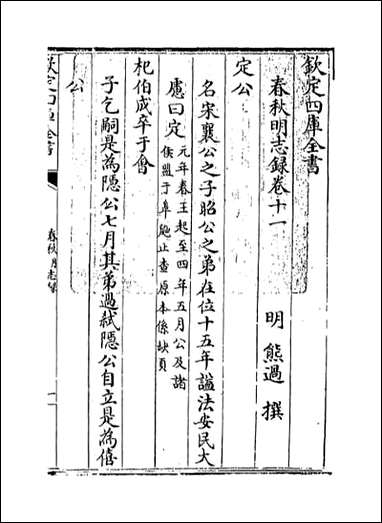 欽定四庫全書
春秋明志錄卷十一
明 熊過 撰
定公
名宋襄公之子昭公之弟在位十五年謚法安民大
慮曰定
元年春王起至四年五月公及諸
侯盟于皐鼬止查原本係缺頁
杞伯成卒于會
子乞嗣是為隱公七月其弟過弑隱公自立是為僖
公
欽定四庫全書
春秋明志錄
一